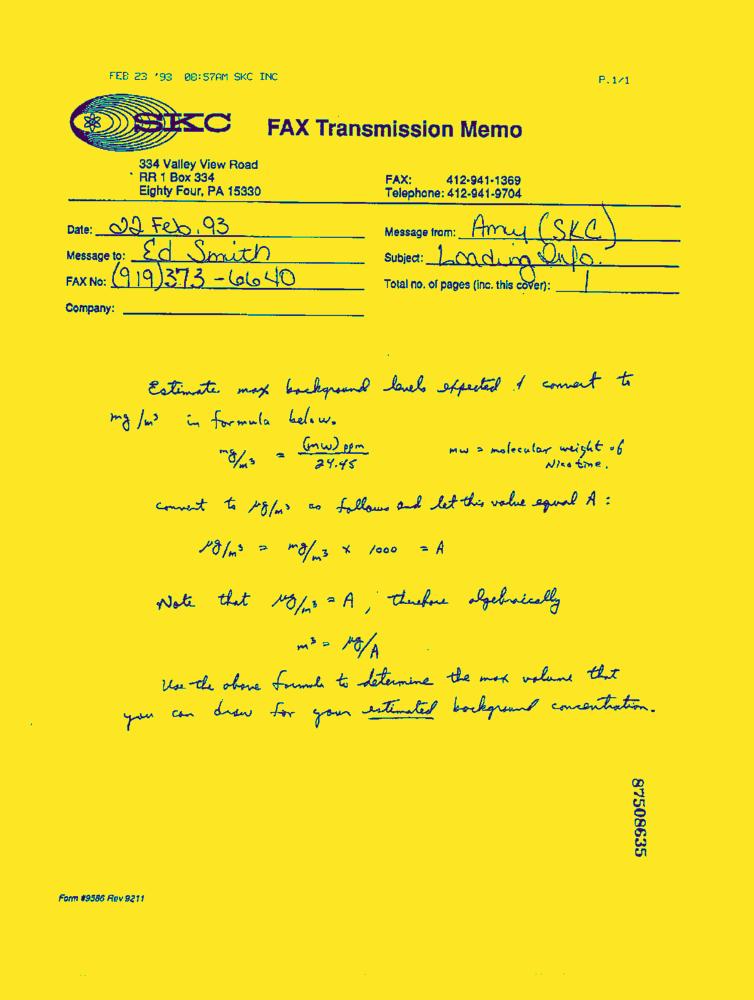 FEB 23 '93 08:57AM SKC INC
P.1/1
SKC
FAX Transmission Memo
334 Valley View Road
RR 1 Box 334
Eighty Four, PA 15330
FAX: 412-941-1369
Telephone: 412-941-9704
Date: 22 Feb. 93
Message from: Amy (SKC)
Message to: Ed Smith
Subject: Loading Info.
FAX No: (919)373-6640
Total no. of pages (inc. this cover): 1
Company:
Estimate max background levels expected & convert to
mg/m³ in formula below.
mg/m³ = (mw) ppm / 24.45
mw = molecular weight of
Nicotine.
convert to µg/m³ as follows and let this value equal A:
µg/m³ = mg/m³ × 1000 = A
Note that µg/m³ = A, therefore algebraically
m³ = µg/A
Use the above formula to determine the max volume that
you can draw for your estimated background concentration.
87508635
Form #9586 Rev 9211